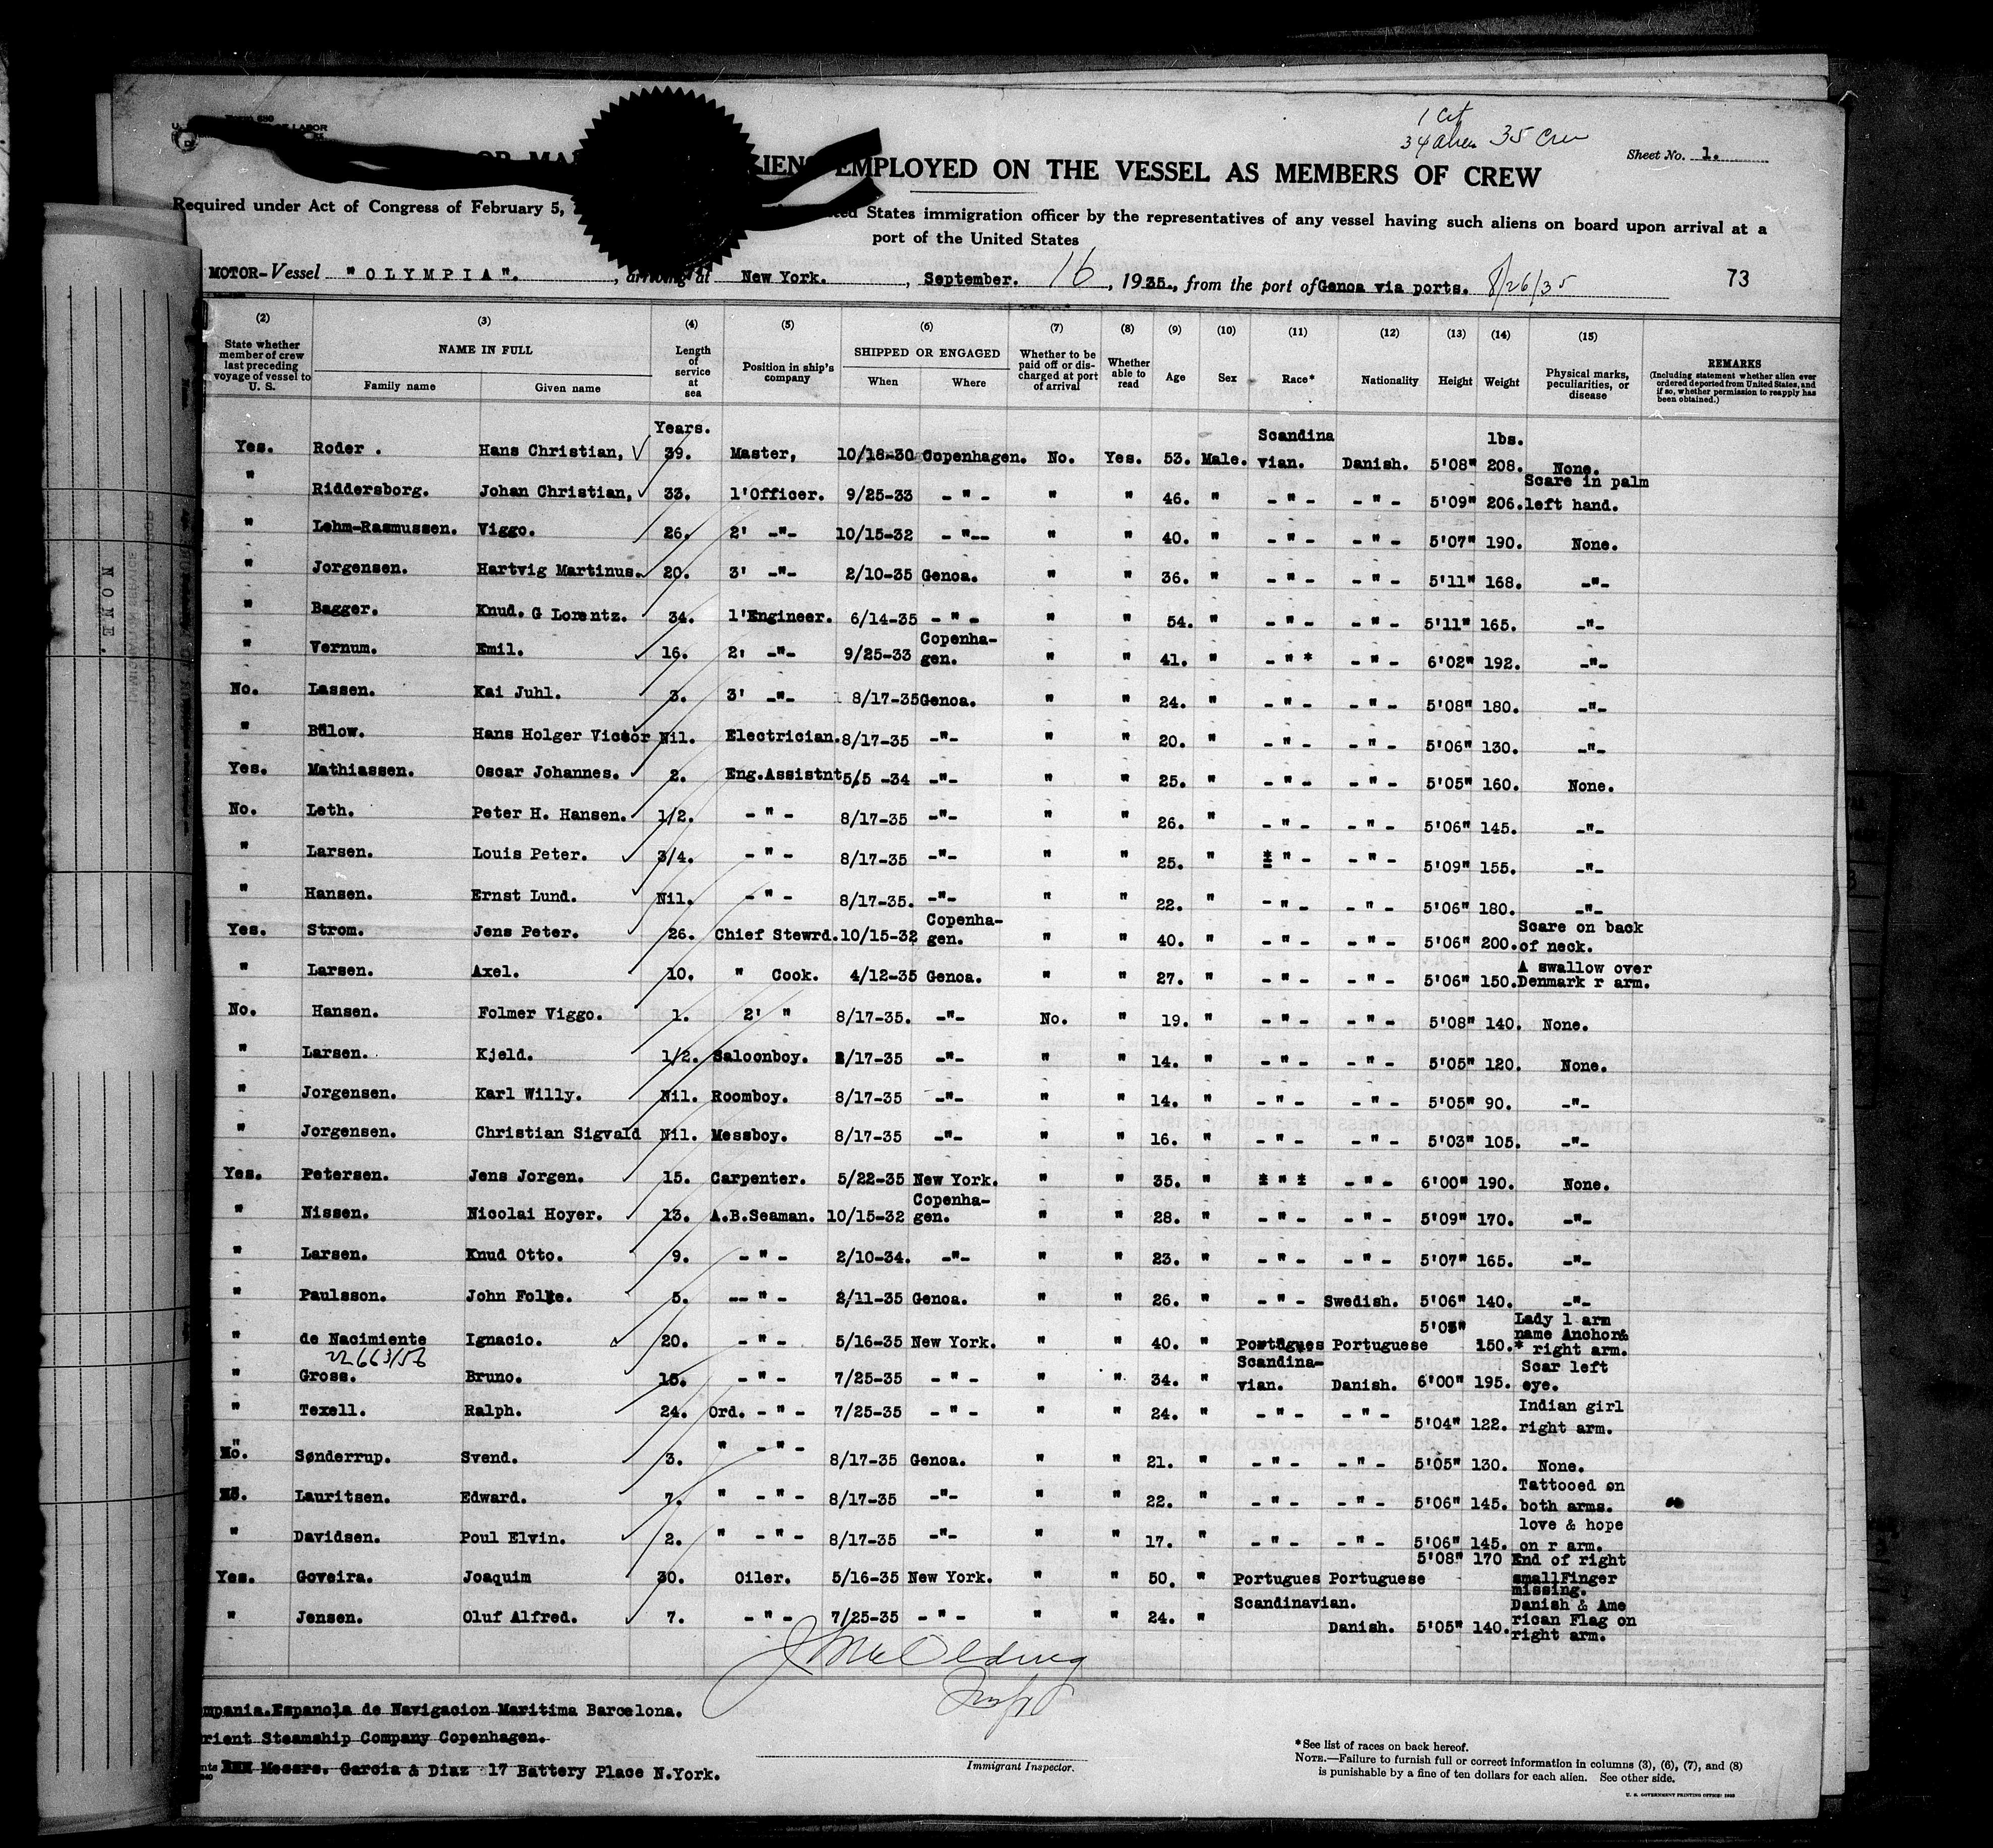 1 Cit
34 alien 35 Crew
Sheet No. 1.
EMPLOYED ON THE VESSEL AS MEMBERS OF CREW
Required under Act of Congress of February 5, States immigration officer by the representatives of any vessel having such aliens on board upon arrival at a
port of the United States
MOTOR-Vessel "OLYMPIA". , arriving at New York. , September. 16 , 1935., from the port of Genoa via ports. 8/26/35 73
(2) (3) (4) (5) (6) (7) (8) (9) (10) (11) (12) (13) (14) (15)
State whether member of crew last preceding voyage of vessel to U. S. NAME IN FULL Family name Given name Length of service at sea Position in ship's company SHIPPED OR ENGAGED When Where Whether to be paid off or discharged at port of arrival Whether able to read Age Sex Race* Nationality Height Weight Physical marks, peculiarities, or disease REMARKS (Including statement whether alien ever ordered deported from United States, and if so, whether permission to reapply has been obtained.)
Years. Scandina lbs.
Yes. Roder . Hans Christian, 39. Master, 10/18-30 Copenhagen. No. Yes. 53. Male. vian. Danish. 5'08" 208. None.
" Riddersborg. Johan Christian, 33. 1'Officer. 9/25-33 - " - " " 46. " - " - - " - 5'09" 206. Scare in palm left hand.
" Lehm-Rasmussen. Viggo. 26. 2' -"- 10/15-32 - "-- " " 40. " - " - - " - 5'07" 190. None.
" Jorgensen. Hartvig Martinus. 20. 3' -"- 2/10-35 Genoa. " " 36. " - " - - " - 5'11" 168. -"-
" Bagger. Knud. G Lorentz. 34. 1'Engineer. 6/14-35 - " - " " 54. " - " - - " - 5'11" 165. -"-
" Vernum. Emil. 16. 2' -"- 9/25-33 Copenha-gen. " " 41. " - " * - " - 6'02" 192. -"-
No. Lassen. Kai Juhl. 3. 3' -"- 8/17-35 Genoa. " " 24. " - " - - " - 5'08" 180. -"-
" Bülow. Hans Holger Victor Nil. Electrician. 8/17-35 -"- " " 20. " - " - - " - 5'06" 130. -"-
Yes. Mathiassen. Oscar Johannes. 2. Eng.Assistnt 5/5 -34 -"- " " 25. " - " - - " - 5'05" 160. None.
No. Leth. Peter H. Hansen. 1/2. - " - 8/17-35 -"- " " 26. " - " - - " - 5'06" 145. -"-
" Larsen. Louis Peter. 3/4. - " - 8/17-35 -"- " " 25. " " - - " - 5'09" 155. -"-
" Hansen. Ernst Lund. Nil. - " - 8/17-35. -"- " " 22. " - " - - " - 5'06" 180. -"-
Yes. Strom. Jens Peter. 26. Chief Stewrd. 10/15-32 Copenha-gen. " " 40. " - " - - " - 5'06" 200. Scare on back of neck.
" Larsen. Axel. 10. " Cook. 4/12-35 Genoa. " " 27. " - " - - " - 5'06" 150. A swallow over Denmark r arm.
No. Hansen. Folmer Viggo. 1. 2' " 8/17-35. -"- No. " 19. " - " - - " - 5'08" 140. None.
" Larsen. Kjeld. 1/2. Saloonboy. 8/17-35 -"- " " 14. " - " - - " - 5'05" 120. None.
" Jorgensen. Karl Willy. Nil. Roomboy. 8/17-35 -"- " " 14. " - " - - " - 5'05" 90. -"-
" Jorgensen. Christian Sigvald Nil. Messboy. 8/17-35 -"- " " 16. " - " - - " - 5'03" 105. -"-
Yes. Petersen. Jens Jorgen. 15. Carpenter. 5/22-35 New York. " " 35. " " - " - 6'00" 190. None.
" Nissen. Nicolai Hoyer. 13. A.B.Seaman. 10/15-32 Copenha-gen. " " 28. " - " - - " - 5'09" 170. -"-
" Larsen. Knud Otto. 9. - " - 2/10-34. -"- " " 23. " - " - - " - 5'07" 165. -"-
" Paulsson. John Folke. 5. -- " - 2/11-35 Genoa. " " 26. " - " - Swedish. 5'06" 140. -"-
" de Nacimiente Ignacio. 20. - " - 5/16-35 New York. " " 40. " Portugues Portuguese 5'03" 150. Lady l arm name Anchor& * right arm.
22663/56
" Gross. Bruno. 15. - " - 7/25-35 - " - " " 34. " Scandina-vian. Danish. 6'00" 195. Scar left eye.
" Texell. Ralph. 24. Ord. - " - 7/25-35 - " - " " 24. " - " - - " - 5'04" 122. Indian girl right arm.
No. Sønderrup. Svend. 3. " - " - 8/17-35 Genoa. " " 21. " - " - - " - 5'05" 130. None.
No. Lauritsen. Edward. 7. " - " - 8/17-35 -"- " " 22. " - " - - " - 5'06" 145. Tattooed on both arms.
" Davidsen. Poul Elvin. 2. " - " - 8/17-35 -"- " " 17. " - " - - " - 5'06" 145. love & hope on r arm.
Yes. Goveira. Joaquim 30. Oiler. 5/16-35 New York. " " 50. " Portugues Portuguese 5'08" 170 End of right smallFinger missing.
" Jensen. Oluf Alfred. 7. - " - 7/25-35 - " - " " 24. " Scandinavian. Danish. 5'05" 140. Danish & Ame rican Flag on right arm.
mpania.Espanola de Navigacion Maritima Barcelona.
rient Steamship Company Copenhagen.
Messrs. Garcia & Diaz 17 Battery Place N.York.
Immigrant Inspector.
*See list of races on back hereof.
NOTE.—Failure to furnish full or correct information in columns (3), (6), (7), and (8)
is punishable by a fine of ten dollars for each alien. See other side.
U. S. GOVERNMENT PRINTING OFFICE: 1933
NONE.